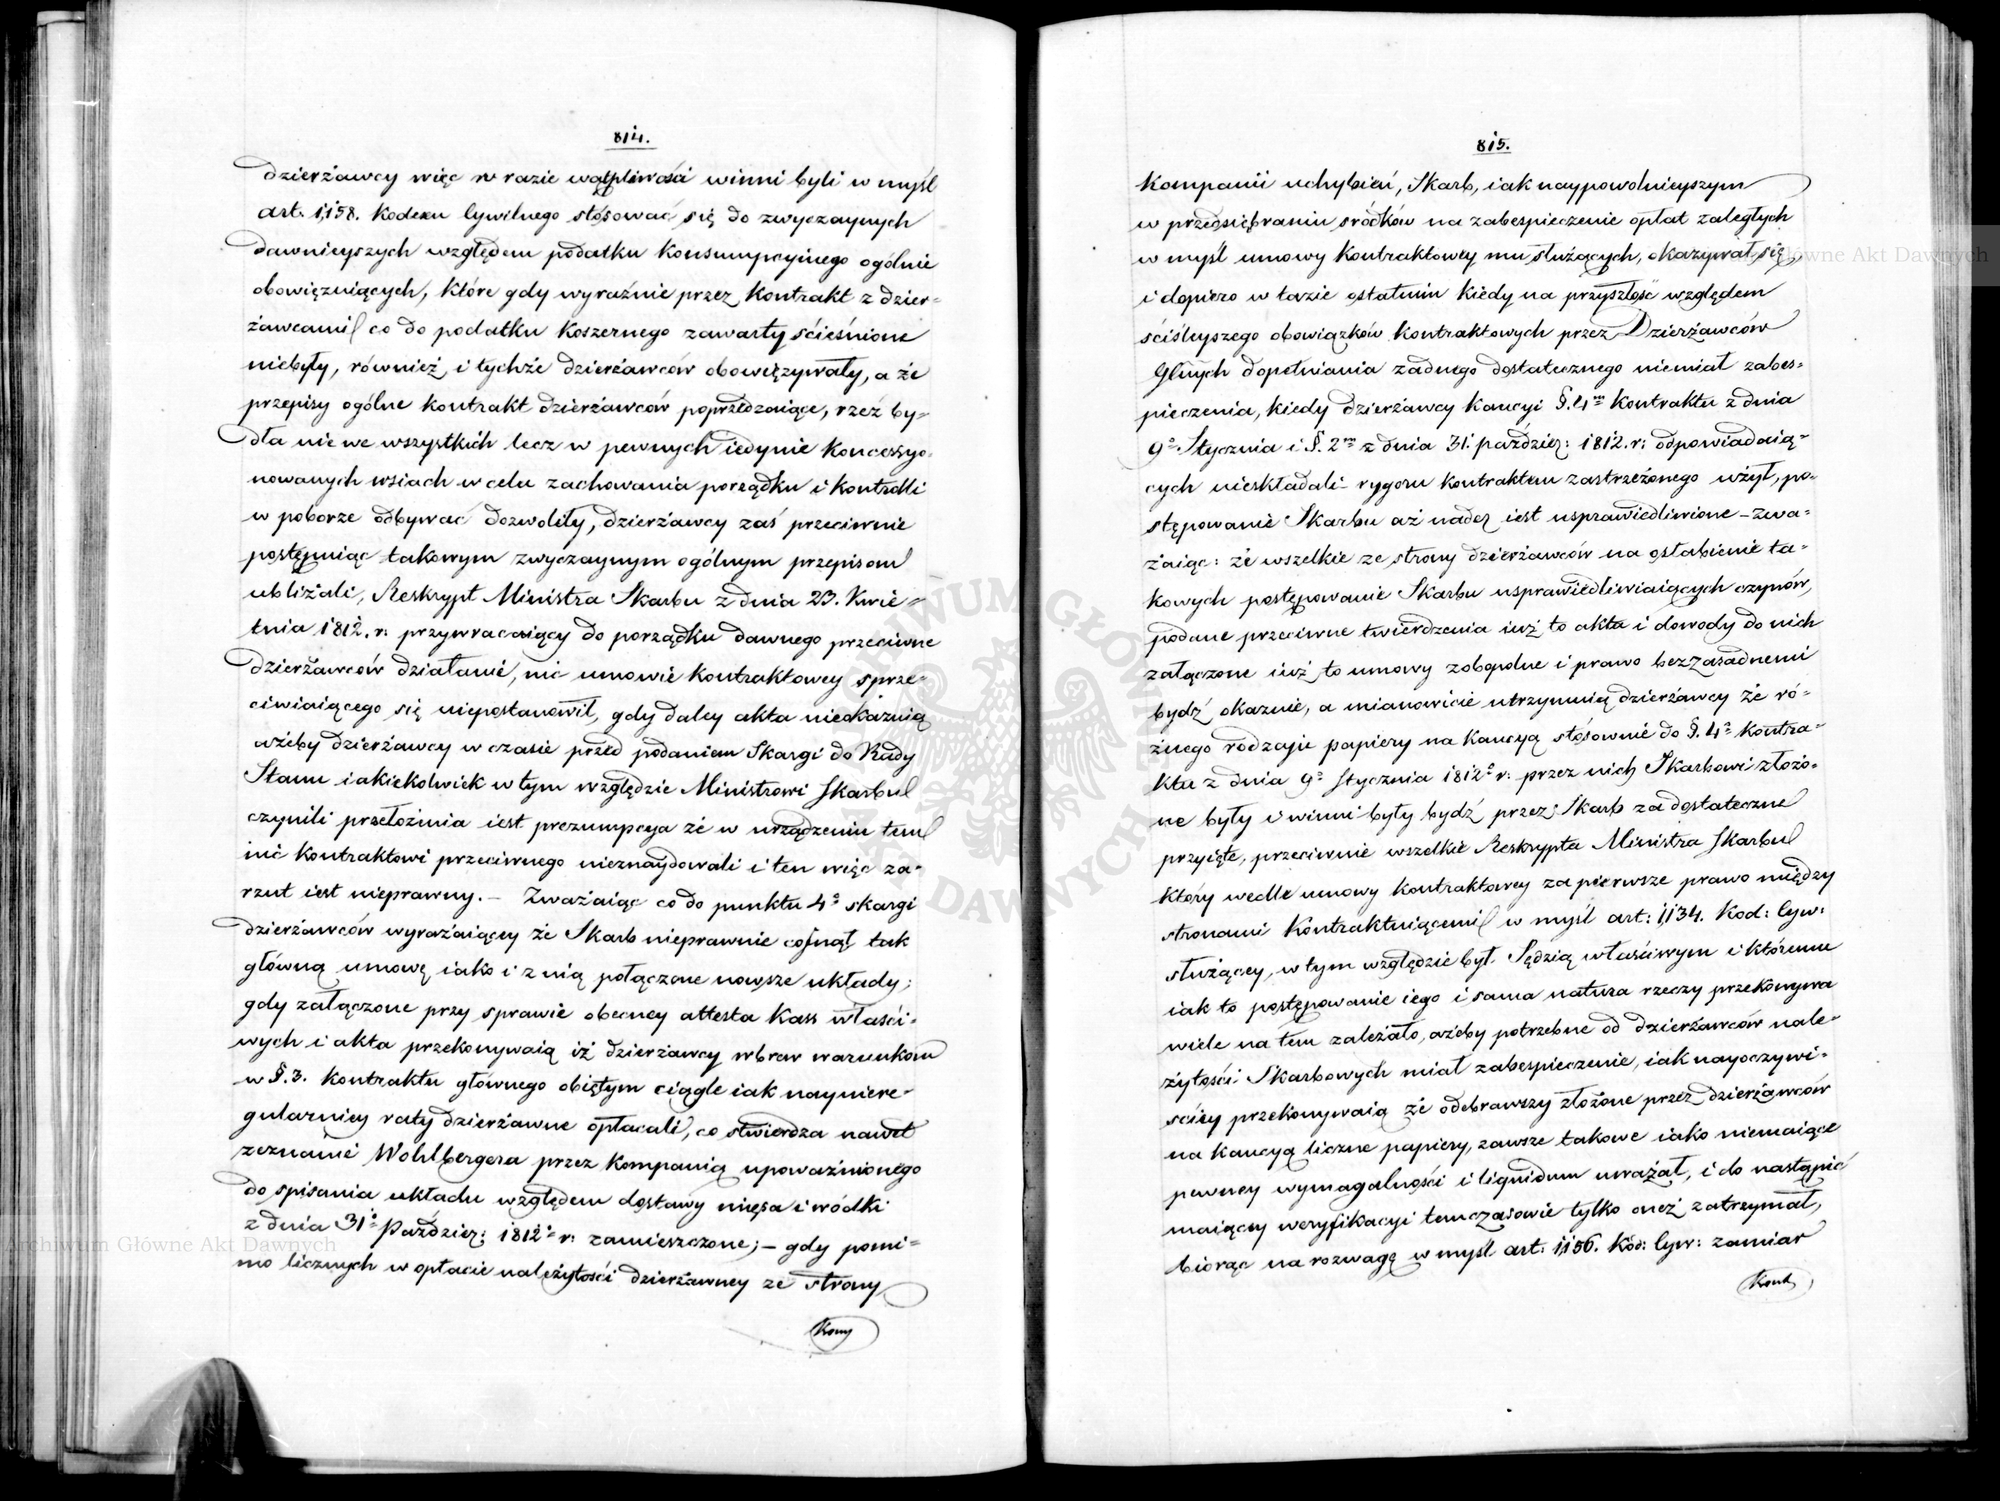 814.
Dzierżawcy więc w razie wątpliwości winni byli w myśl
art. 1,158. Kodexu Cywilnego stósować się do zwyczaynych
dawnieyszych względem podatku Konsumpcyinego ogólnie
obowięzuiących, które gdy wyraźnie przez Kontrakt z dzier-
żawcami co do podatku Koszernego zawarty ścieśnione
niebyły, również i tychże dzierżawców obowięzywały, a że
przepisy ogólne Kontrakt dzierżawców poprzedzaiące, rzeź by-
dła nie we wszystkich lecz w pewnych iedynie Koncessyo-
nowanych wsiach w celu zachowania porządku i Kontrolli
w poborze odbywać dozwoliły, dzierżawcy zaś przeciwnie
postępuiąc takowym zwyczaynym ogólnym przepisom
ubliżali, Reskrypt Ministra Skarbu z dnia 23. Kwie-
tnia 1812. r: przywracaiący do porządku dawnego przeciwne
dzierżawców działanie, nic umowie Kontraktowey sprze-
ciwiaiącego się niepostanowił, gdy daley akta nieokazuią
ażeby dzierżawcy w czasie przed podaniem Skargi do Rady
Stanu iakiekolwiek w tym względzie Ministrowi Skarbu
czynili przełożenia iest prezumpcya że w urządzeniu tem
nic Kontraktowi przeciwnego nieznaydowali i ten więc za-
rzut iest nieprawny. – Zważaiąc co do punktu 4º skargi
dzierżawców wyrażaiący że Skarb nieprawnie cofnął tak
główną umowę iako i z nią połączone nowsze układy;
gdy załączone przy sprawie obecney attesta Kass właści-
wych i akta przekonywaią iż dzierżawcy wbrew warunkom
w §. 3. Kontraktu głównego obiętym ciągle iak naymiere-
gularniey raty dzierżawne opłacali, co stwierdza nawet
zeznanie Wohlbergera przez Kompanią upoważnionego
do spisania układu względem dostawy mięsa i wódki
z dnia 31º Paździer: 1812º r: zamieszczone; – gdy pomi-
mo licznych w opłacie należytości dzierżawney ze strony
Kom
815.
Kompanii uchybień, Skarb, iak naypowolnieyszym
w przedsiębraniu sródków na zabespieczenie opłat zaległych
w myśl umowy Kontraktowey mu służących, okazywał się,
i dopiero w razie ostatnim kiedy na przyszłość względem
ściśleyszego obowiązków Kontraktowych przez Dzierżawców
dopełniania żadnego dostatecznego niemiał zabes-
pieczenia, kiedy dzierżawcy Kaucyi §. 4m Kontraktu z dnia
9º Stycznia i §. 2m z dnia 31. paździer: 1812. r: odpowiadaią-
cych nieskładali – rygoru Kontraktem zastrzeżonego użył, po-
stępowanie Skarbu aż nader iest usprawiedliwione – zwa-
żaiąc: że wszelkie ze strony dzierżawców na osłabienie ta-
kowych postępowanie Skarbu usprawiedliwiaiących czynów,
podane przeciwne twierdzenia iuż to akta i dowody do nich
załączone iuż to umowy zobopolne i prawo bezzasadnemi
bydź okazuie, a mianowicie utrzymuią dzierżawcy że ró-
żnego rodzaju papiery na Kaucyą stósownie do §. 4º Kontra-
ktu z dnia 9º Stycznia 1812º r: przez nich Skarbowi złożo-
ne były i winni były bydź przez Skarb za dostateczne
przyięte, przeciwnie wszelkie Reskrypta Ministra Skarbu
który wedle umowy Kontraktowey za pierwsze prawo między
stronami Kontraktuiącemi w myśl art: 1,134. Kod: Cyw:
służącey, w tym względzie był Sędzią właściwym i któremu
iak to postępowanie iego i sama natura rzeczy przekonywa
wiele na tém zależało, ażeby potrzebne od dzierżawców nale-
żytości Skarbowych miał zabespieczenie, iak nayoczywi-
ściey przekonywaią że odebrawszy złożone przez dzierżawców
na Kaucyą liczne papiery, zawsze takowe iako niemaiące
pewney wymagalności i liquidum uważał, i do nastąpić
maiącey weryfikacyi temczasowie tylko oneż zatrzymał,
biorąc na rozwagę w myśl art: 1,156. Kod: Cyw: zamiar
Kont